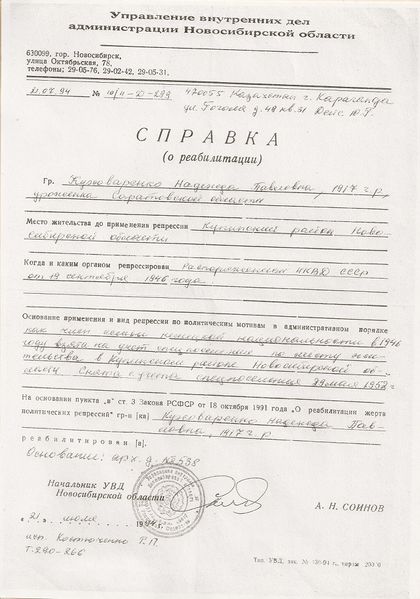 Управление внутренних дел
администрации Новосибирской области
630099, гор. Новосибирск,
улица Октябрьская, 78,
телефоны: 29-05-76, 29-02-42, 29-05-31.
21.07.94 № 10/11-Д-299 470055 Казахстан г. Караганда
ул. Гоголя д. 49 кв. 31 Дейс Ю.Г.
СПРАВКА
(о реабилитации)
Гр. Кузговаренко Надежда Павловна, 1917 г.р,
уроженка Саратовской области
Место жительства до применения репрессии Купинский район Ново-
сибирской области
Когда и каким органом репрессирован Распоряжением НКВД СССР
от 19 сентября 1946 года
Основание применения и вид репрессии по политическим мотивам в административном порядке
как член семьи немецкой национальности в 1946
году взята на учет спецпоселения по месту жи-
тельства в Купинском районе Новосибирской об-
ласти. Снята с учета спецпоселения 29 мая 1952 г
На основании пункта „в" ст. 3 Закона РСФСР от 18 октября 1991 года „О реабилитации жертв
политических репрессий" гр-н (ка) Кузговаренко Надежда Пав-
ловна, 1917 г.р
реабилитирован [а].
Основание: арх. д. № 538
Начальник УВД
Новосибирской области
А. Н. СОИНОВ
„21" июля 1994 г.
исп. Костюченко Р.П.
Т. 290-266
Тип. УВД, зак. № 130-94 г., тираж